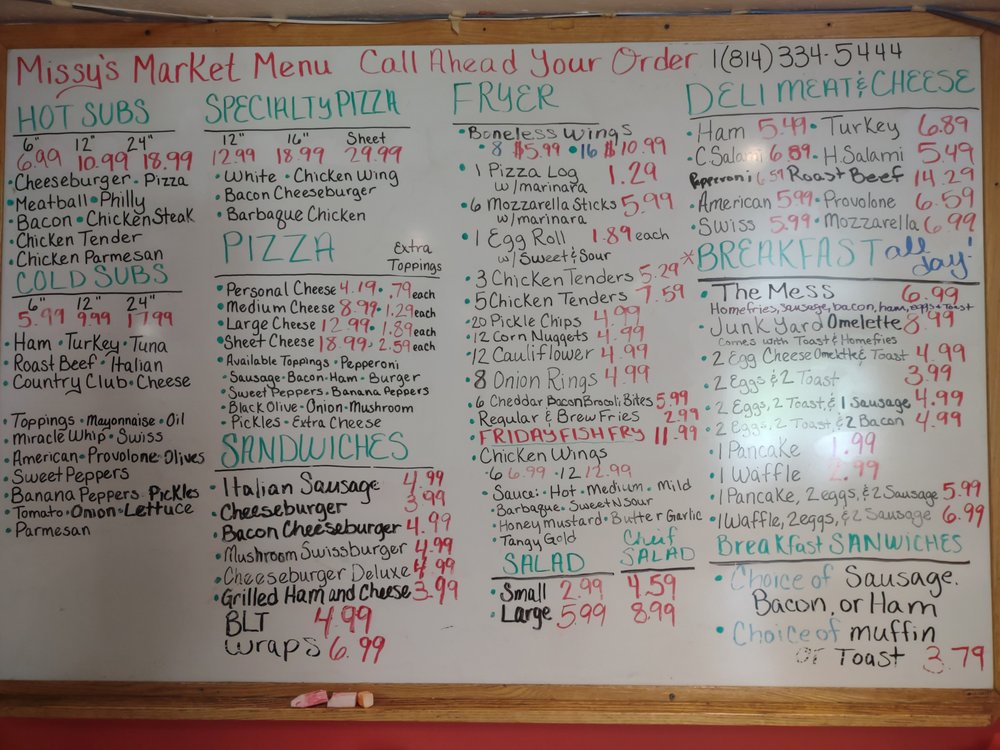 Missy's Market Menu Call Ahead Your Order 1(814)334-5444
HOT SUBS
6" 12" 24"
6.99 10.99 18.99
• Cheeseburger • Pizza
• Meatball • Philly
• Bacon • Chicken Steak
• Chicken Tender
• Chicken Parmesan
COLD SUBS
6" 12" 24"
5.99 9.99 17.99
• Ham • Turkey • Tuna
Roast Beef • Italian
• Country Club • Cheese
Toppings • Mayonnaise • Oil
• Miracle Whip • Swiss
• American • Provolone • Olives
• Sweet Peppers
• Banana Peppers • Pickles
• Tomato • Onion • Lettuce
• Parmesan
SPECIALTY PIZZA
12" 16" Sheet
12.99 18.99 29.99
• White • Chicken Wing
• Bacon Cheeseburger
• Barbaque Chicken
PIZZA Extra Toppings
• Personal Cheese 4.19 • .79 each
• Medium Cheese 8.99 • 1.29 each
• Large Cheese 12.99 • 1.89 each
• Sheet Cheese 18.99 • 2.59 each
• Available Toppings • Pepperoni
• Sausage • Bacon • Ham • Burger
• Sweet Peppers • Banana Peppers
• Black Olive • Onion • Mushroom
• Pickles • Extra Cheese
SANDWICHES
• Italian Sausage 4.99
• Cheeseburger 3.99
• Bacon Cheeseburger 4.99
• Mushroom Swissburger 4.99
• Cheeseburger Deluxe 4.99
• Grilled Ham and Cheese 3.99
BLT 4.99
Wraps 6.99
FRYER
• Boneless Wings
• 8 $5.99 • 16 $10.99
• 1 Pizza Log 1.29
w/marinara
• 6 Mozzarella Sticks 5.99
w/marinara
• 1 Egg Roll 1.89 each
w/Sweet & Sour
• 3 Chicken Tenders 5.29
• 5 Chicken Tenders 7.59
• 20 Pickle Chips 4.99
• 12 Corn Nuggets 4.99
• 12 Cauliflower 4.99
• 8 Onion Rings 4.99
• 6 Cheddar Bacon Brocoli Bites 5.99
• Regular & Brew Fries 2.99
• FRIDAY FISH FRY 11.99
• Chicken Wings
• 6 6.99 • 12 12.99
• Sauce: • Hot • Medium • Mild
• Barbaque • Sweet N Sour
• Honey mustard • Butter Garlic
• Tangy Gold
SALAD Chef SALAD
• Small 2.99 4.59
• Large 5.99 8.99
DELI MEAT & CHEESE
• Ham 5.49 • Turkey 6.89
• C. Salami 6.89 • H. Salami 5.49
Pepperoni 6.59 Roast Beef 14.29
• American 5.99 • Provolone 6.59
• Swiss 5.99 • Mozzarella 6.99
*BREAKFAST all day!
• The Mess 6.99
Homefries, Sausage, bacon, ham, eggs + toast
• Junk Yard Omelette 8.99
Comes with Toast & Homefries
• 2 Egg Cheese Omelette & Toast 4.99
• 2 Eggs & 2 Toast 3.99
• 2 Eggs, 2 Toast, & 1 Sausage 4.99
• 2 Eggs, 2 Toast, & 2 Bacon 4.99
• 1 Pancake 1.99
• 1 Waffle 2.99
• 1 Pancake, 2 eggs, & 2 Sausage 5.99
• 1 Waffle, 2 eggs, & 2 Sausage 6.99
Breakfast SANWICHES
• Choice of Sausage.
Bacon, or Ham
• Choice of muffin
or Toast 3.79